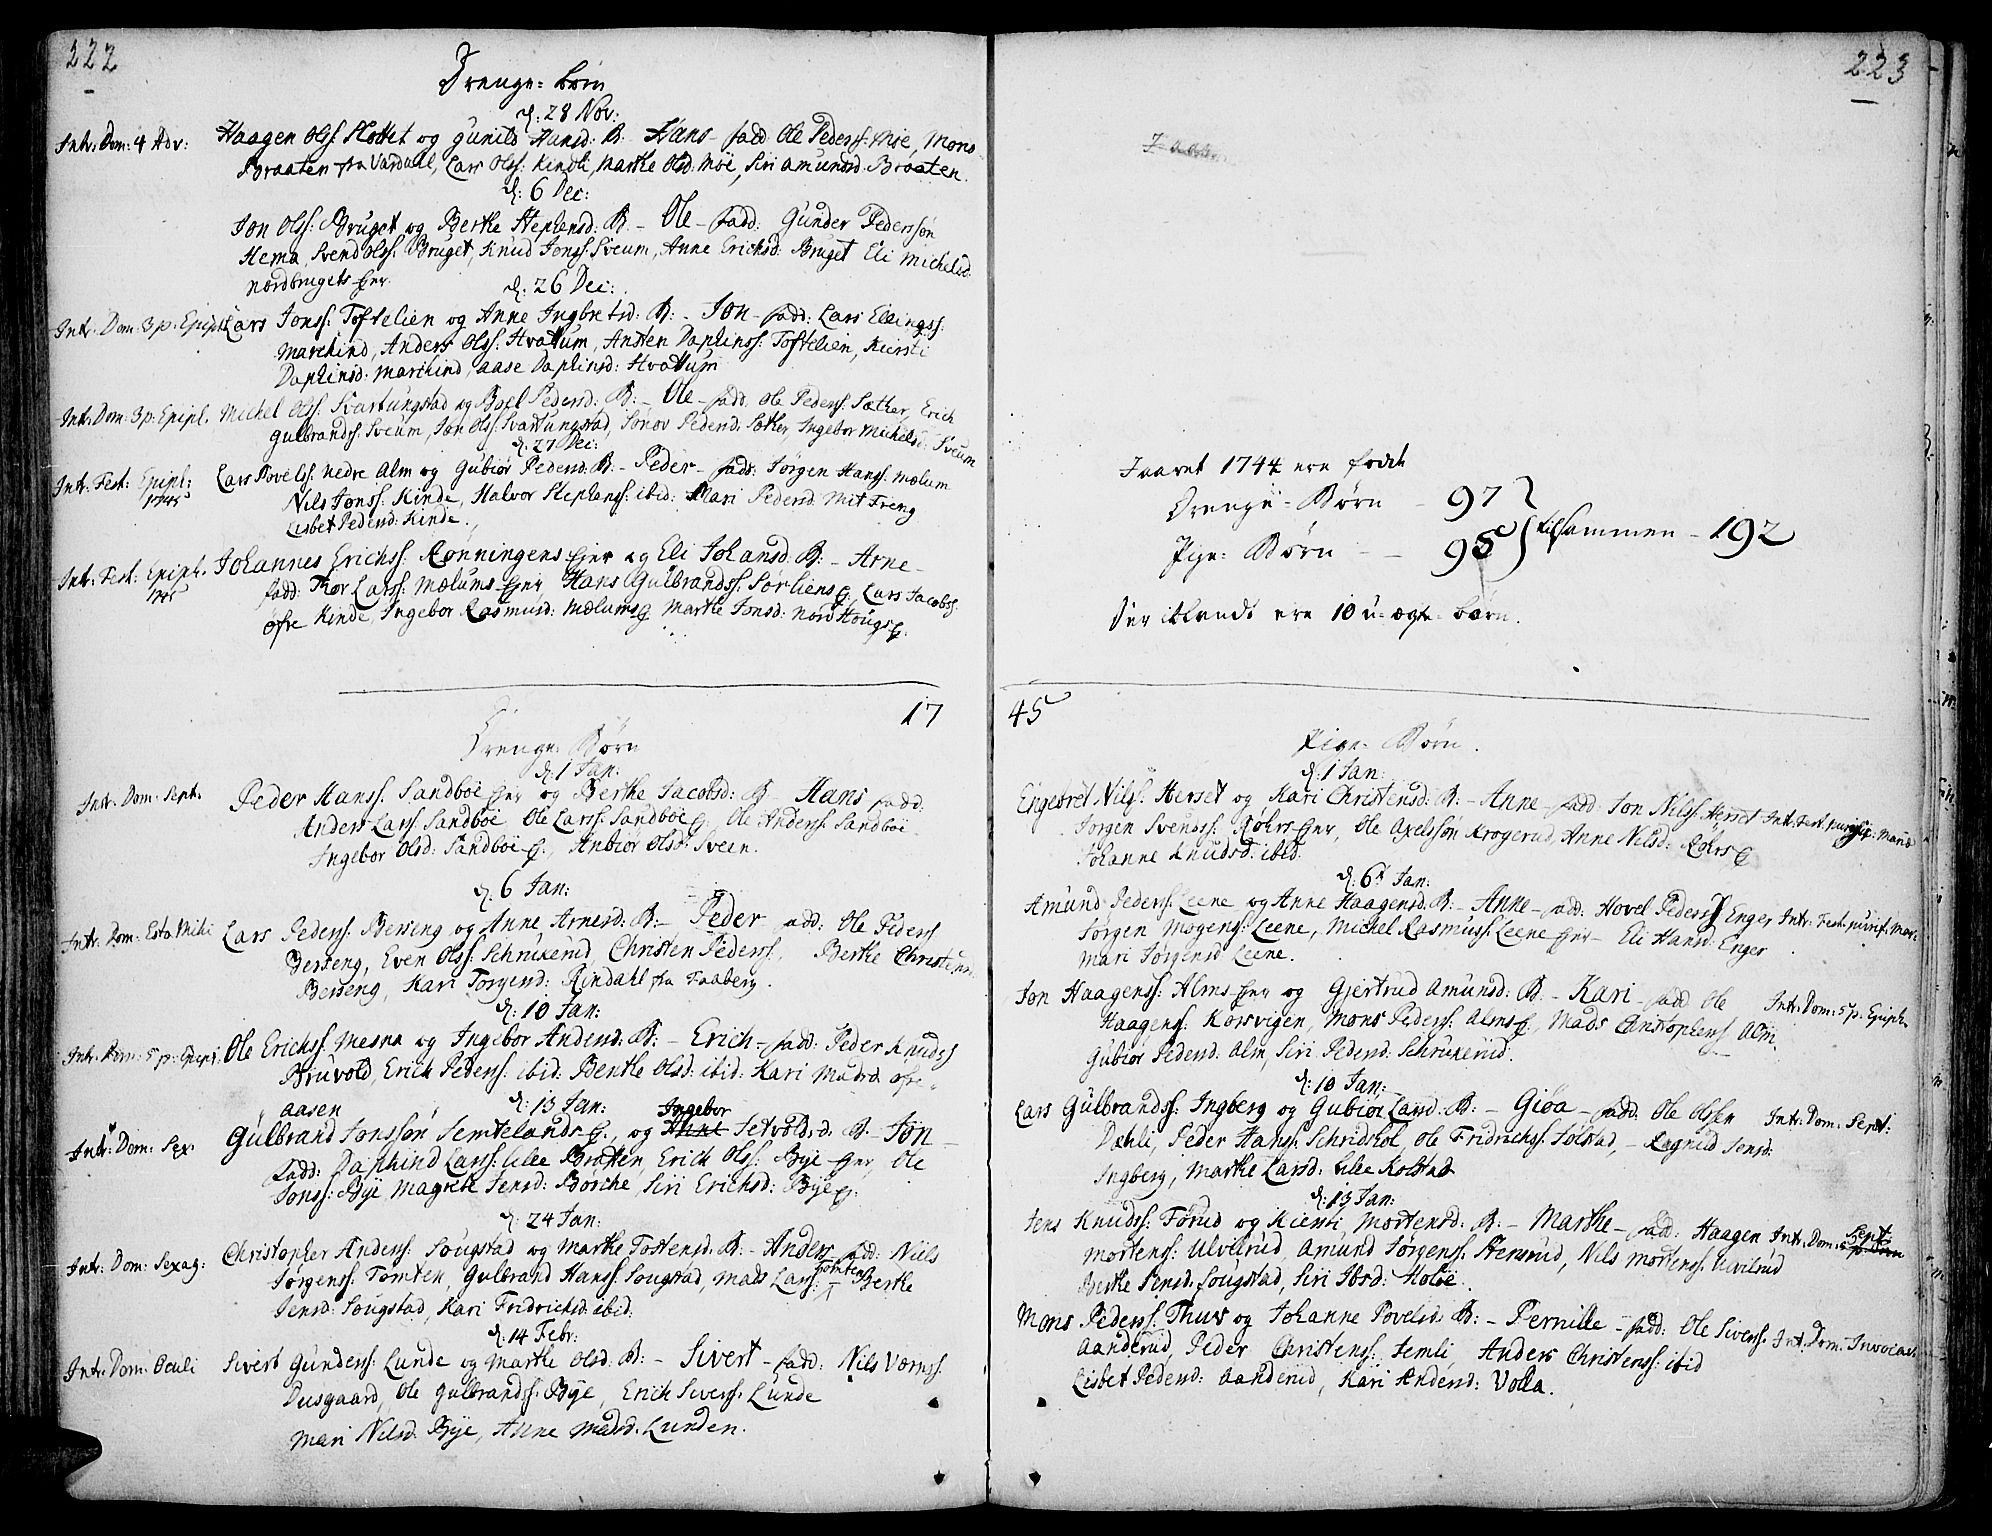 222
Drenge= børn
d: 28 Nov:
Intr. Dom: 4 Adv:
Haagen Olss. Slottet og Gunild Hansd: B: - Hans - fadd Ole Pederss: Moe, Mons
Braaten fra Vardahl, Lars Olss: Kindli, Marthe Olsd. Moe, Siri Amunsd. Braaten.
d: 6 Dec:
Jon Olss: Bruget og Berthe Stephensd: B: - Ole - fadd: Gunder Pederssøn
Hema, Svend Olss: Bruget, Knud Jonss: Sveum, Anne Erichsd: Bruget Eli Michelsd:
nordbrugets Eyer.
d: 26 Dec:
Intr. Dom: 3 p: Epiph:
Lars Jonss: Toftelien og Anne Ingbretsd: B: - Jon - fadd: Lars Ellingss:
Marchind, Anders Olss: Hvattum, Ansten Daphinss: Toftelien, Kiersti
Daphinsd: Marchind, Aase Daphinsd: Hvattum
Intr: Dom: 3 p: Epiph.
Michel Olss: Svartungstad og Boel Pedersd: B: - Ole - fadd. Ole Pederss: Sæther, Erich
Gulbrandss: Sveum, Jon Olss: Svartungstad, Sønov Pedersd: Sæther, Ingebor Michelsd: Sveum
d: 27 Dec:
Intr: Fest: Epiph:
1745
Lars Povelss: nedre Alm og Gubiør Pedersd: B: - Peder - fadd: Jørgen Hanss: Mælum
Nils Jonss: Kinde, Halvor Stephanss: ibid: Mari Pedersd: Mit Treng
Lisbet Pedersd: Kinde.
Intr: Fest: Epiph.
1745
Johannes Erichss. Rønningens Eyer og Eli Johansd: B: - Arne -
fadd: Thor Larss: Mælums Eyer, Hans Gulbrandss: Sørliens E:, Lars Jacobss:
øfre Kinde, Ingebor Rasmusd: Mælums E Marthe Jonsd: nord Hougs E:
17
Drenge= Børn
d: 1 Jan:
Intr. Dom: Sept.
Peder Hanss: Sandboe Eyer og Berthe Jacobsd: B - Hans fadd.
Anders Larss: Sandboe Ole Larss: Sandboe E: Ole Anderss: Sandboe
Ingebor Olsd: Sandboe E:, Anbiør Olsd: Sveen.
d: 6 Jan:
Intr. Dom: Esto Mihi
Lars Pederss. Berseng og Anne Arnesd: B: - Peder fadd: Ole Pederss
Berseng, Even Olss: Schrukerud, Christen Pederss:, Berthe Christensd.
Berseng, Kari Torgersd: Rindahl fra Faaberg.
d: 10 Jan:
Intr. Dom: 5 p: Epiph:
Ole Erichss: Mesna og Ingebor Andersd: B: - Erich - fadd: Peder Knudss
Bruvold, Erich Pederss: ibid: Berthe Olsd: ibid: Kari Madsd: øfre
aasen
d: 13 Jan:
Intr: Dom: Sex.
Gulbrand Jonssøn Semtelands E:, og Anne Ingebor Setvoldsd: B - Jon -
fadd: Daphind Larss: lille Bratten, Erich Olss: Bye Eyer, Ole
Jonss: Bye Magrete Jensd: Børche, Siri Erichsd: Bye E:
d: 24 Jan:
Intr: Dom: Sexag:
Christopher Anderss: Sougstad og Marthe Tostensd: B: - Anders - fadd: Niels
Jørgenss: Tomten, Gulbrand Hanss: Sougstad, Mads Larss: Tomten Berthe
Jensd: Sougstad, Kari Fridrichsd: ibid:
d: 14 Febr:
Intr: Dom: Oculi
Sivert Gunderss: Lunde og Marthe Olsd: B: - Sivert - fadd: Nils Værnss.
Dusgaard, Ole Gulbrandss: Bye, Erich Siverss. Lunde
Mari Nilsd: Bye, Anne Madsd: Lunden.
223
Jaaret 1744 ere fødte
Drenge= Børn - 97
Pige= Børn - - 95 tilsammen - 192
Der iblandt ere 10 u=ægte= børn.
45
Pige= Børn.
d: 1 Jan:
Engebret Nilss: Herset og Kari Christensd: B: - Anne - fadd: Jon Nilss: Herset Intr: Fest: purif: Mariæ
Jørgen Svendss: Røhrs Eyer, Ole Axelssøn Krogerud, Anne Nilsd: Røhrs E
Johanne Knudsd: ibid.
d: 6 Jan:
Amund Pederss: Leene og Anne Haagensd: B: - Anne - fadd: Hovel Pederss Enger, Intr: Fest: purif: Mar:
Jørgen Mogenss: Leene, Michel Rasmuss: Leene Eyer - Eli Hansd: Enger
Mari Jørgensd Leene.
Jon Haagenss: Alms Eyer og Gjertrud Amunsd: B: - Kari - fadd Ole Intr: Dom: 5 p: Epiph.
Haagenss: Korsvigen, Mons Pederss: Alms E:, Mads Christophers Alm.
Gubiør Pedersd: Alm, Siri Pedersd: Schrukerud.
d: 10 Jan:
Lars Gulbrandss: Ingberg og Gubiør Larsd: B: - Giøa - fadd: Ole Olsen Intr: Dom: Sept:
Dahli, Peder Hanss: Schridshol, Ole Fridrichss: Solstad, - Ragnild Jensd:
Ingberg, Marthe Larsd: lille Kolstad
d: 13 Jan:
Jens Knudss: Forud og Kiersti Mortensd: B: - Marthe - fadd: Haagen Intr: Dom: Sept:
Mortenss: Ulvilrud, Amund Jørgenss: Stensrud, Nils Mortenss: Ulvilrud
Berthe Jensd. Sougstad, Siri Ibsd: Holøe.
Mons Pederss: Thuv og Johanne Povelsd: B: - Pernille - fadd: Ole Siverss: Int: Dom: Invocav:
Aanderud, Peder Christenss: Semli, Anders Christenss: ibid
Lisbet Pedersd: Aanderud, Kari Andersd: Volla.